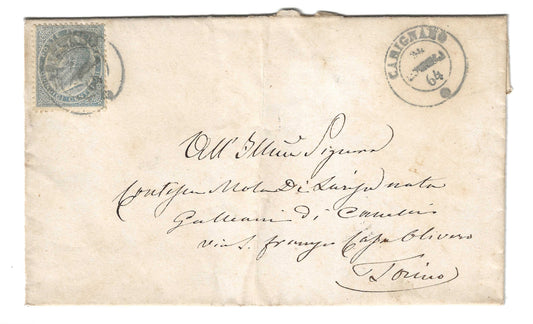 CARIGNANO
64
All' Illma Signora
Contessa Mola Di Larissé nata
Galleani di Canelli
via S. Franço Casa Olivero
Torino